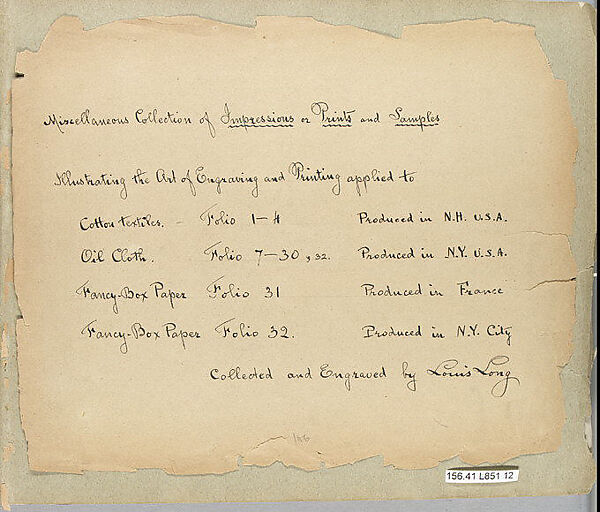 Miscellaneous Collection of Impressions or Prints and Samples
Illustrating the Art of Engraving and Printing applied to
Cotton textiles. - Folio 1-4 Produced in N.H. U.S.A.
Oil Cloth. Folio 7-30, 32. Produced in N.Y. U.S.A.
Fancy-Box Paper Folio 31 Produced in France
Fancy-Box Paper Folio 32. Produced in N.Y. City
Collected and Engraved by Louis Long
156.41 L851 12